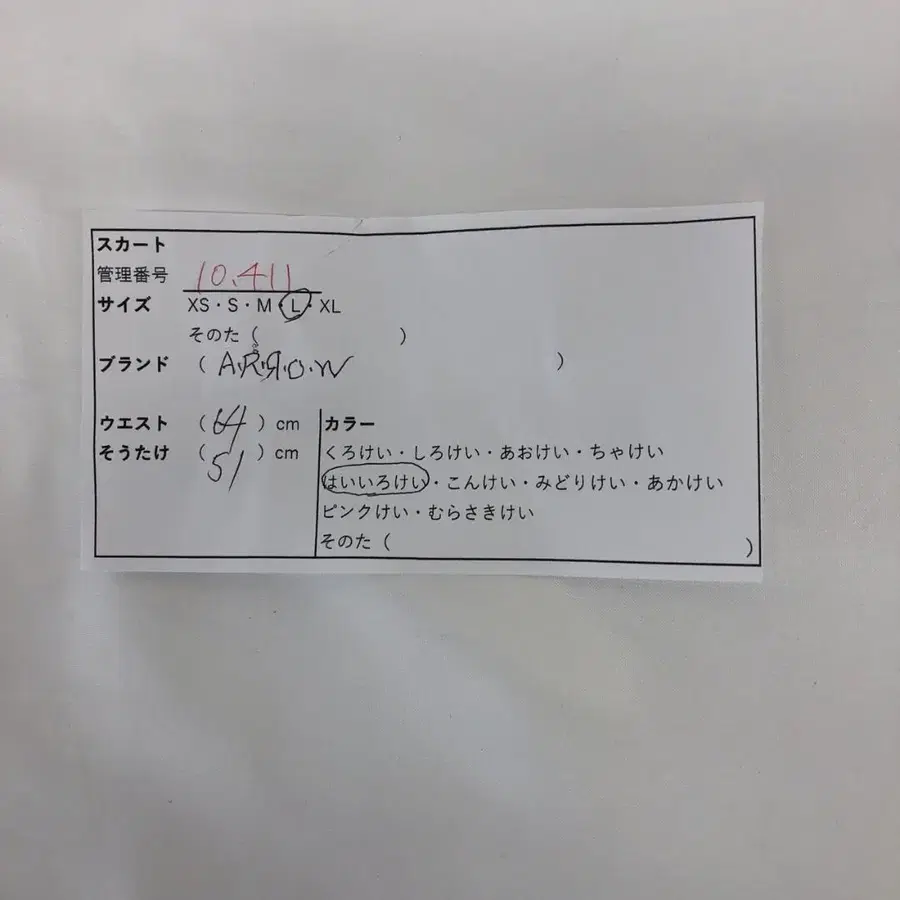 スカート
管理番号 10.411
サイズ XS・S・M・L・XL
そのた ( )
ブランド ( A.R.R.O.W )
ウエスト (64) cm
そうたけ (51) cm
カラー
くろけい・しろけい・あおけい・ちゃけい
はいいろけい・こんけい・みどりけい・あかけい
ピンクけい・むらさきけい
そのた ( )